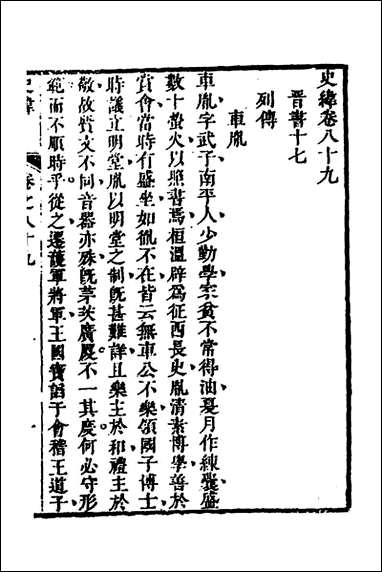 史緯卷八十九
晉書十七
列傳
車胤
車胤字武子南平人少勤學家貧不常得油夏月作練囊盛
數十螢火以照書焉桓溫辟為征西長史胤清素博學善於
賞會當時有盛坐如胤不在皆云無車公不樂領國子博士
時議立明堂胤以明堂之制旣甚難詳且樂主於和禮主於
敬故質文不同音器亦殊旣茅茨廣廈不一其度何必守形
範而不順時乎從之遷護軍將軍王國寶諂于會稽王道子
史緯
卷之八十九